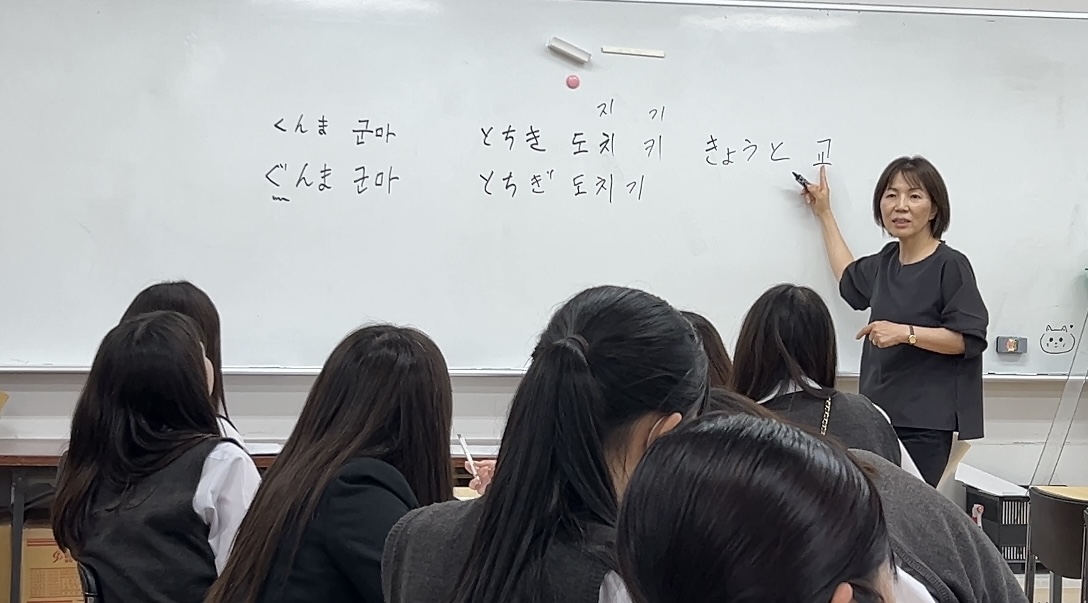 くんま 군마
ぐんま 군마
지 기
とちき 도치키
とちぎ 도치기
きょうと 교